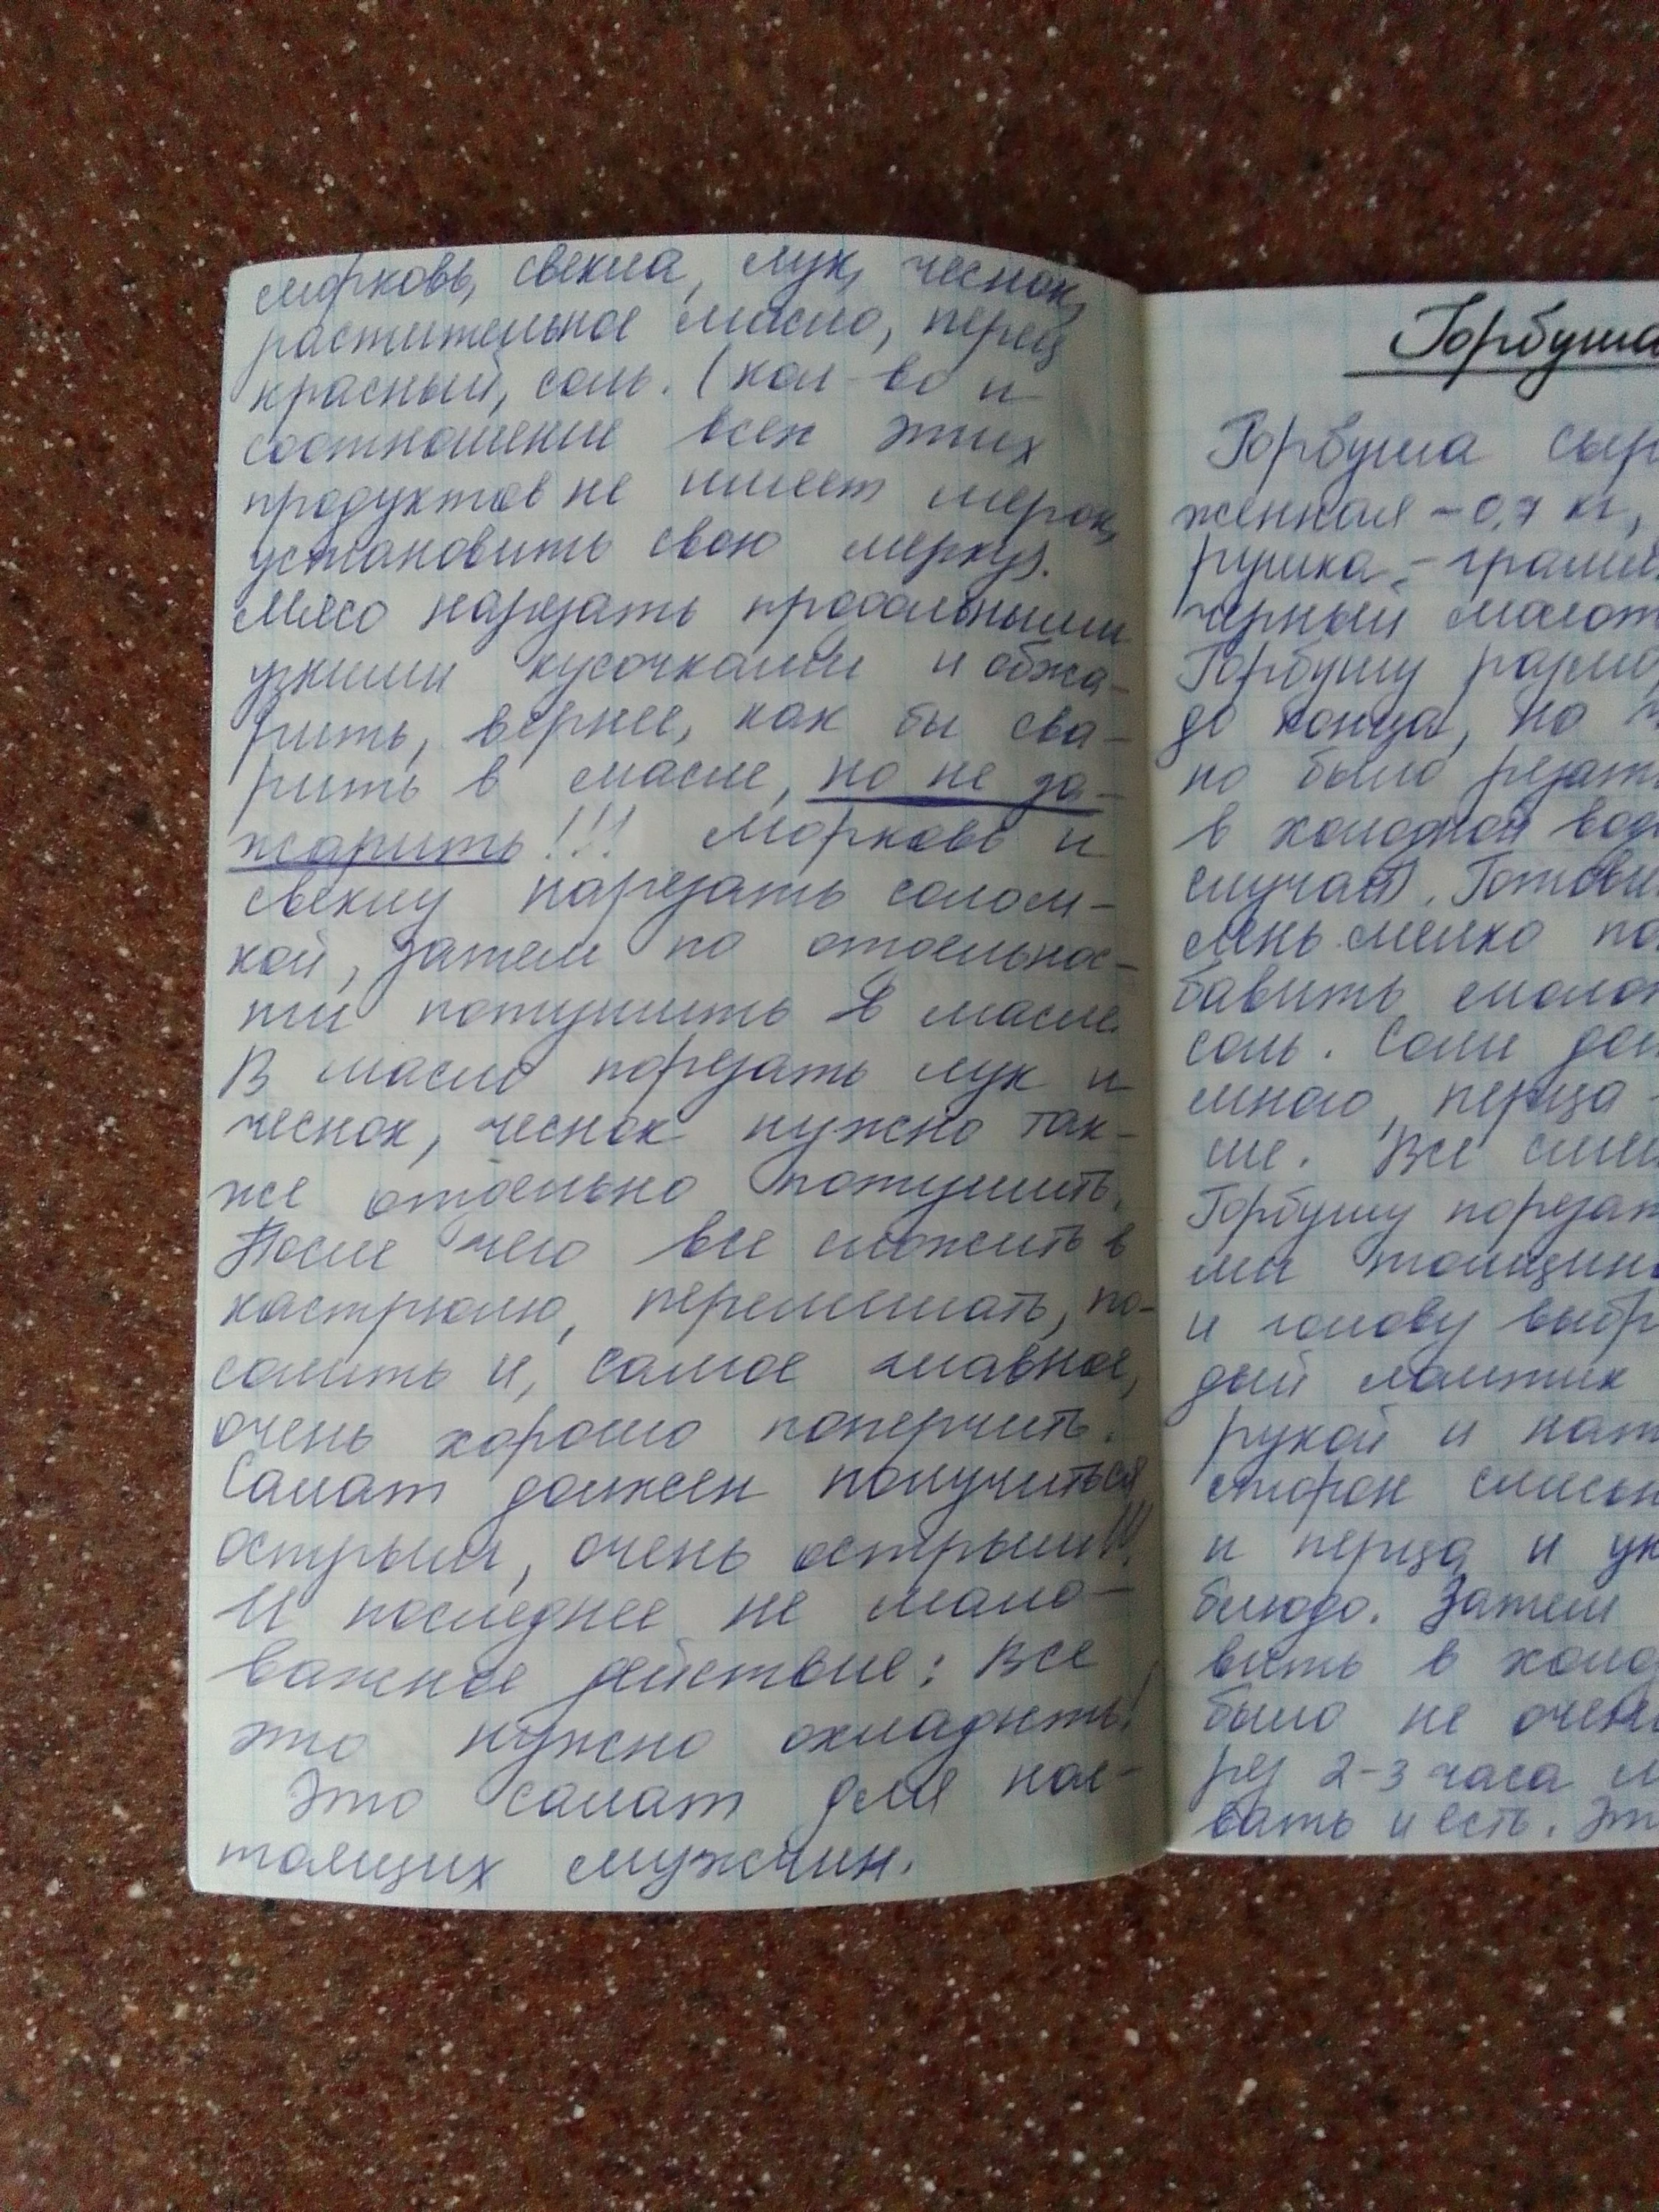 морковь, свекла, лук, чеснок,
растительное масло, перец
красный, соль. (кол-во и
соотношение всех этих
продуктов не имеет мерок,
установить свою мерку).
Мясо нарезать продольными
узкими кусочками и обжа-
рить, вернее, как бы сва-
рить в масле, но не за-
жарить!!! Морковь и
свеклу нарезать солом-
кой, затем по отдельнос-
ти потушить в масле.
В масло порезать лук и
чеснок, чеснок нужно так-
же отдельно потушить.
После чего все сложить в
кастрюлю, перемешать, по-
солить и, самое главное,
очень хорошо поперчить.
Салат должен получиться
острым, очень острым!!!
И последнее не мало-
важное действие: Все
это нужно охладить!
Это салат для нас-
тоящих мужчин.
Горбуша
Горбуша сыр
женная - 0,7 кг,
рушка - грамм
черный молот
Горбушу размо
до конца, но
но было резат
в холодной вод
случай). Готови
лень мелко по
бавить молот
соль. Соли дол
много, перца -
ше. Все сме
Горбушу порезат
ми толщин
и голову выбр
дый ломтик
рукой и нат
сторон смесь
и перца и ук
блюдо. Затем
вить в холод
было не очен
рез 2-3 часа м
вать и есть. Эт